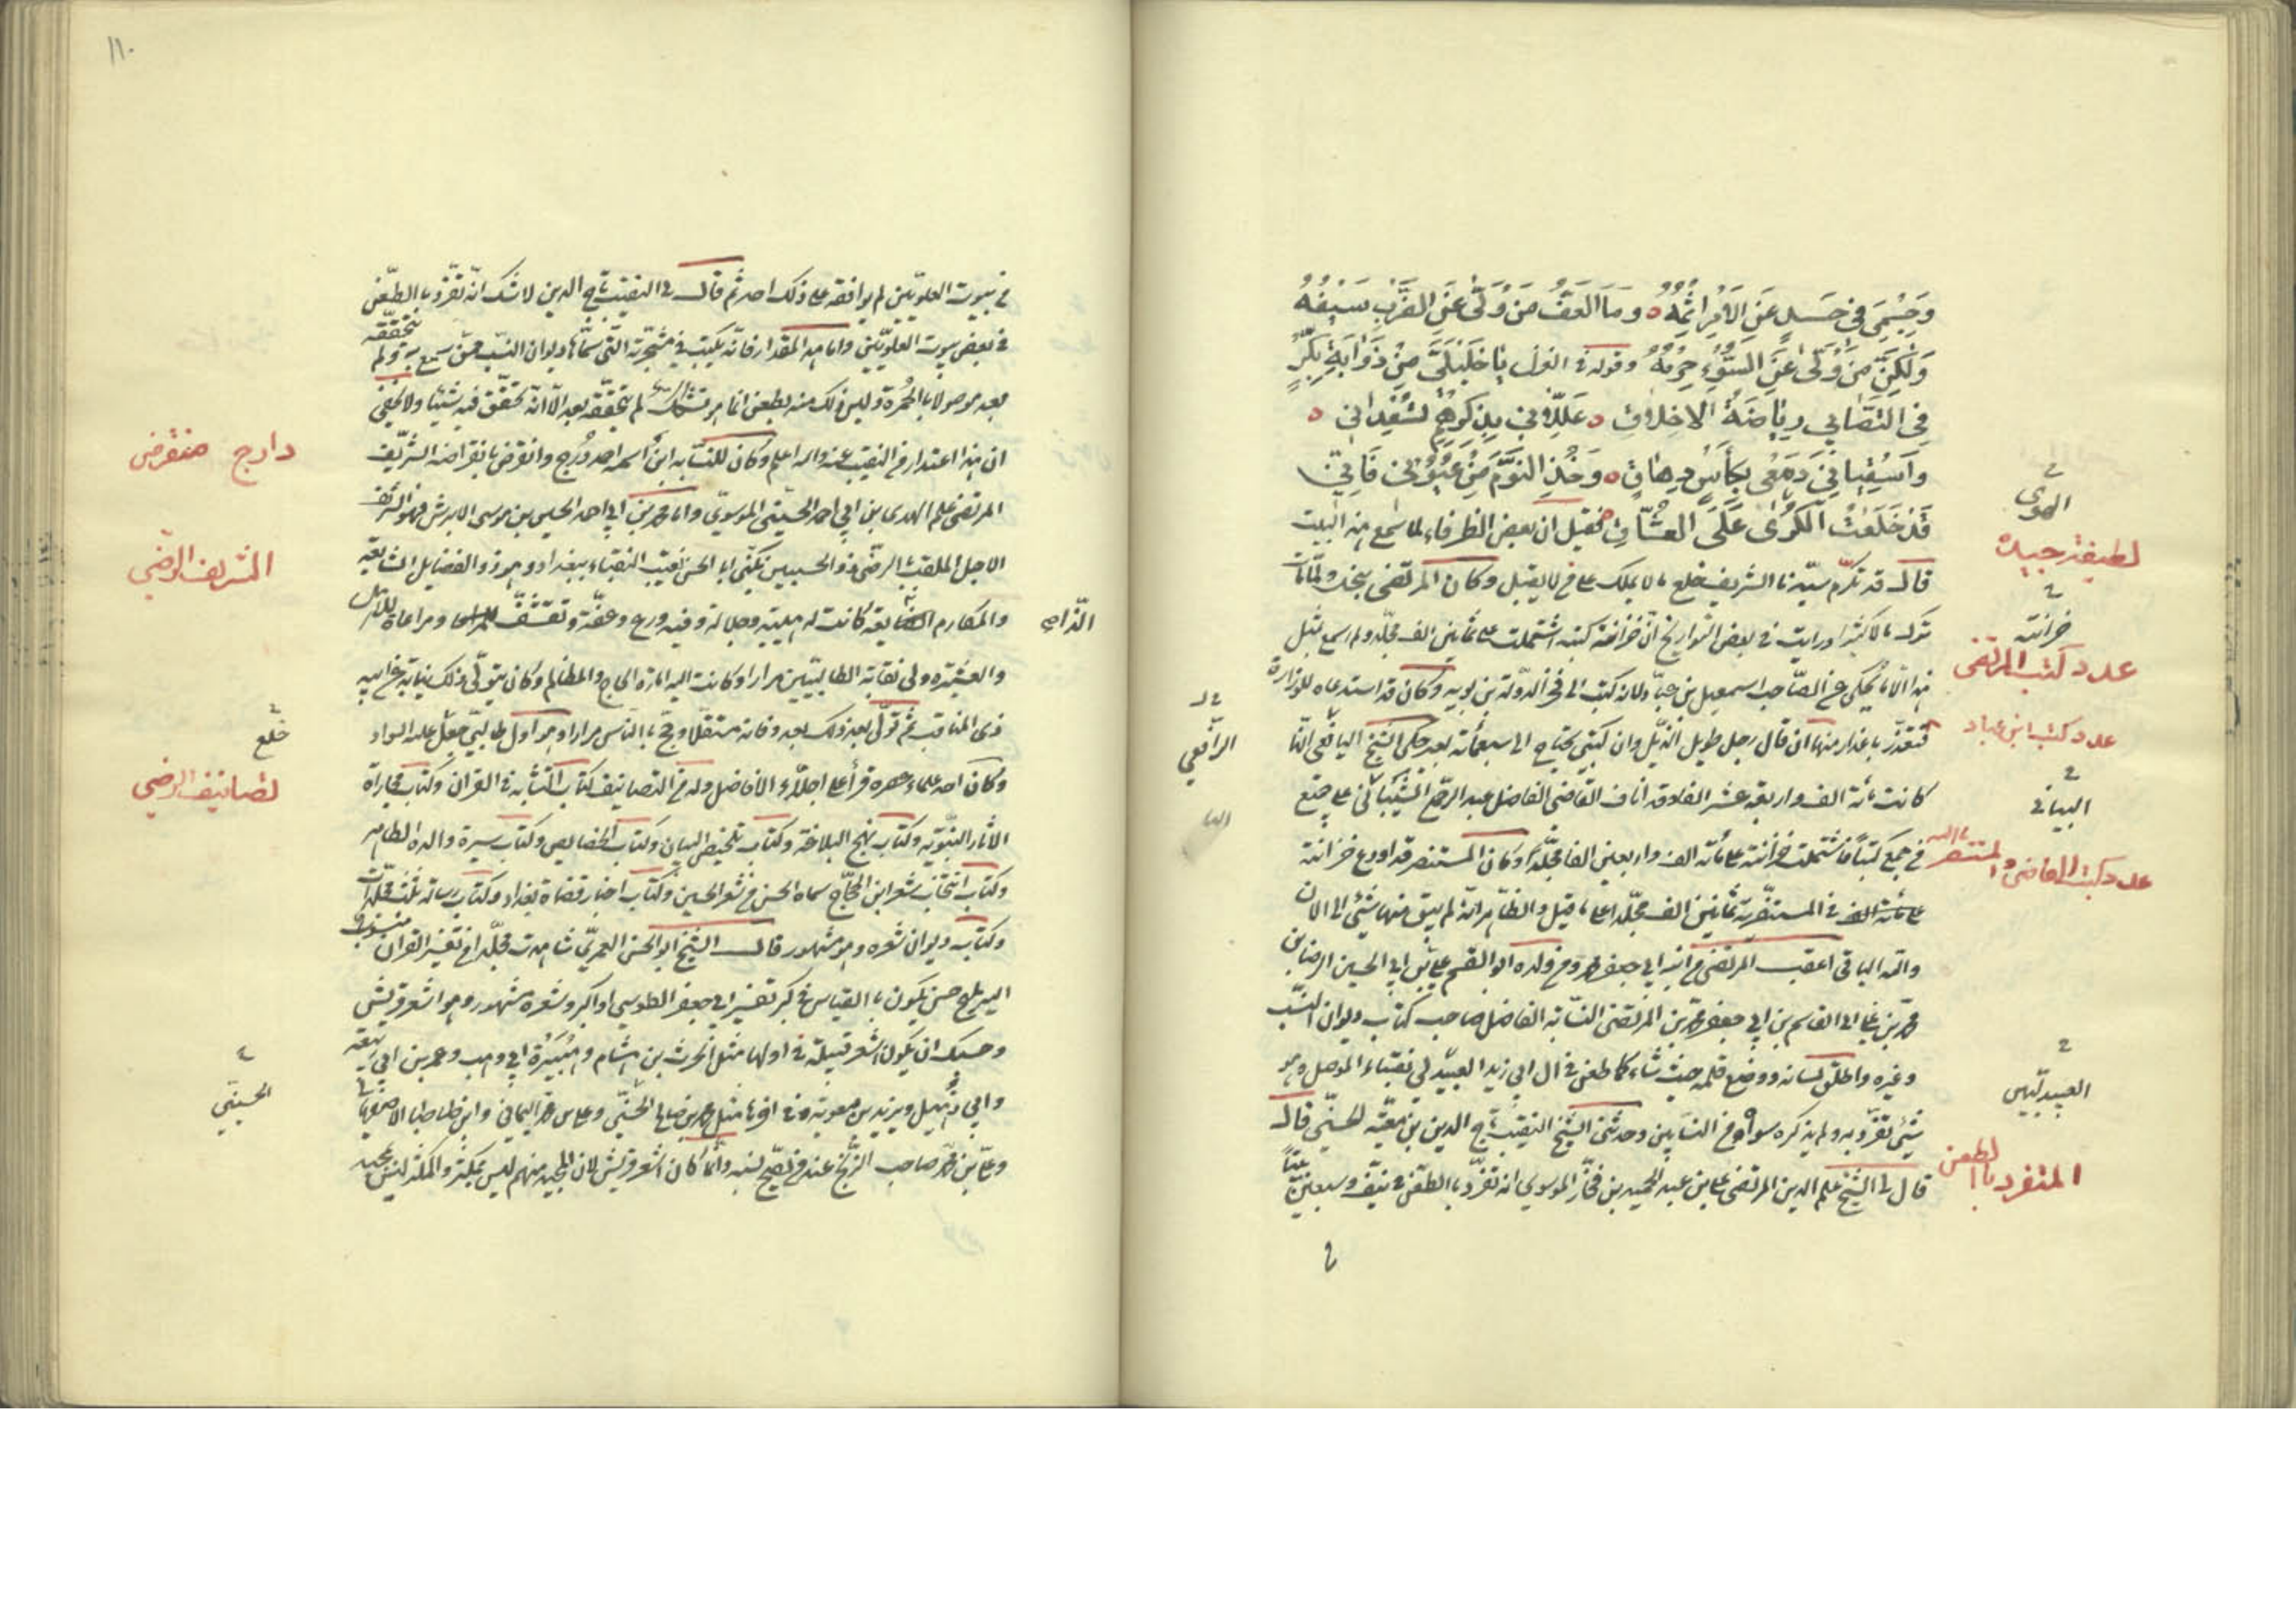 وجسمي في حسد عن الامر اثمه وما العف من ولى عن الضرب سيفه
ولكن من ولى عن السوء حزمه وقوله في الغزل يا خليلي من ذوابة بكر
في التصابي رياضة الاخلاق عللاني بذكرهم تسعداني
واسقياني دمعي بكأس دهاق وخذ النوم من عيوني فاني
قد خلعت الكرى على العشاق فقيل ان بعض الظرفاء لما سمع هذا البيت
قال قد تكرم سيدنا الشريف خلع ما لا يملك على من لا يقبل وكان المرتضى يبخل ولما مات
ترك مالا كثيرا ورايت في بعض التواريخ ان خزانة كتبه اشتملت على ثمانين الف مجلد ولم اسمع بمثل
هذا الا ما يحكى عن الصاحب اسمعيل بن عباد انه كتب الى فخر الدولة بن بويه وكان قد استدعاه للوزارة
فتعذر باعذار منها ان قال رجل طويل الذيل وان كتبي تحتاج الى سبعمائة بعير حكى الشيخ اليافعي انها
كانت مائة الف واربعة عشر الفا وقد اناف القاضي الفاضل عبد الرحيم الشيباني على جميع
من جمع كتبا فاشتملت خزانته على مائة الف واربعين الفا مجلدا وكان المستنصر قد اودع خزانته
في المستنصرية ثمانين الف مجلد اعلى ما قيل والظاهر انه لم يبق منها شئ الى الان
والله الباقي اعقب المرتضى من ابنه ابي جعفر محمد ومن ولده ابو القسم علي بن ابي الحسين الرضا بن
محمد بن علي ابي القاسم بن ابي جعفر محمد بن المرتضى النسابة الفاضل صاحب كتاب ديوان النسب
وغيره واطلق لسانه ووضع قلمه حيث شاء كما طعن في ال ابي زيد العبيدلي نقباء الموصل وهو
شئ تفرد به ولم يذكره سواه من النسابين وحدثني الشيخ النقيب تاج الدين بن معية الحسني قال
قال لي الشيخ علم الدين المرتضى علي بن عبد الحميد بن فخار الموسوي انه تفرد بالطعن في نيف وسبعين بيتا
الهوى
لطيفة جيدة
خزانته
عدد كتب المرتضى
عدد كتب ابن عباد
الرافعي
البياني
عدد كتب القاضي والمستنصر بالله
العبيدليين
المتفرد بالطعن
١١٠
في بيوت العلويين لم يوافقه على ذلك احد ثم قال لي النقيب تاج الدين لا شك انه تفرد بالطعن
في بعض بيوت العلويين واما هذا المقدار فانه يكتب في مشجرته التي سماها ديوان النسب من سمع به ولم يتحققه
بعد موصولا بالحمرة وليس ذلك منه بطعن انما هو تشكك لم يتحققه بعد الا انه تحقق فيه شيئا ولا يخفى
ان هذا اعتذار من النقيب عنه والله اعلم وكان للنسابه ابن اسمه احمد درج وانقرض بانقراضه الشريف
المرتضى علم الهدى بن ابي احمد الحسيني الموسوي واما محمد بن ابي احمد الحسين بن موسى الابرش فهو الشريف
الاجل الملقب بالرضي ذو الحسبين يكنى ابا الحسن نقيب النقباء ببغداد وهو ذو الفضايل الشايعة
والمكارم الذايعة كانت له هيبة وجلالة وفيه ورع وعفة وتقشف ومراعاة للاهل
والعشيرة ولي نقابة الطالبيين مرارا وكانت اليه امارة الحاج والمظالم وكان يتولى ذلك نيابة عن ابيه
ذى المناقب ثم تولى بعد ذلك بعد وفاته مستقلا وحج بالناس مرارا وهو اول طالبي جعل عليه السواد
وكان احد علماء عصره قرأ على اجلاء الافاضل وله من التصانيف كتاب المتشابه في القران وكتاب مجازاة
الاثار النبوية وكتاب نهج البلاغة وكتاب تلخيص البيان وكتاب الخصايص وكتاب سيرة والده الطاهر
وكتاب انتخاب شعر ابن الحجاج سماه الحسن من شعر الحسين وكتاب اخبار قضاة بغداد وكتاب رسائله ثلث مجلدات
وكتاب ديوان شعره وهو مشهور قال الشيخ ابو الحسن العمري شاهدت مجلدا من تفسير القران منسوب
اليه مليح حسن يكون بالقياس في كبر تفسير ابي جعفر الطوسي او اكبر وشعره مشهور وهو اشعر قريش
وحسبك ان يكون اشعر قبيلة في اولها مثل الحرث بن هشام وهبيرة ابي وهب وعمر بن ابي ربيعة
وابي دهبل ويزيد بن معوية وفي اخرها مثل محمد بن صالح الحسني وعلي بن محمد الحماني وابن طباطبا الاصفهاني
وعلي بن محمد صاحب الزنج عند من يصحح نسبه وانما كان اشعر قريش لان المجيد منهم ليس بمكثر والمكثر ليس بمجيد
دارج منقرض
الشريف الرضي
الذايعة
خلع
تصانيف الرضي
الحسيني